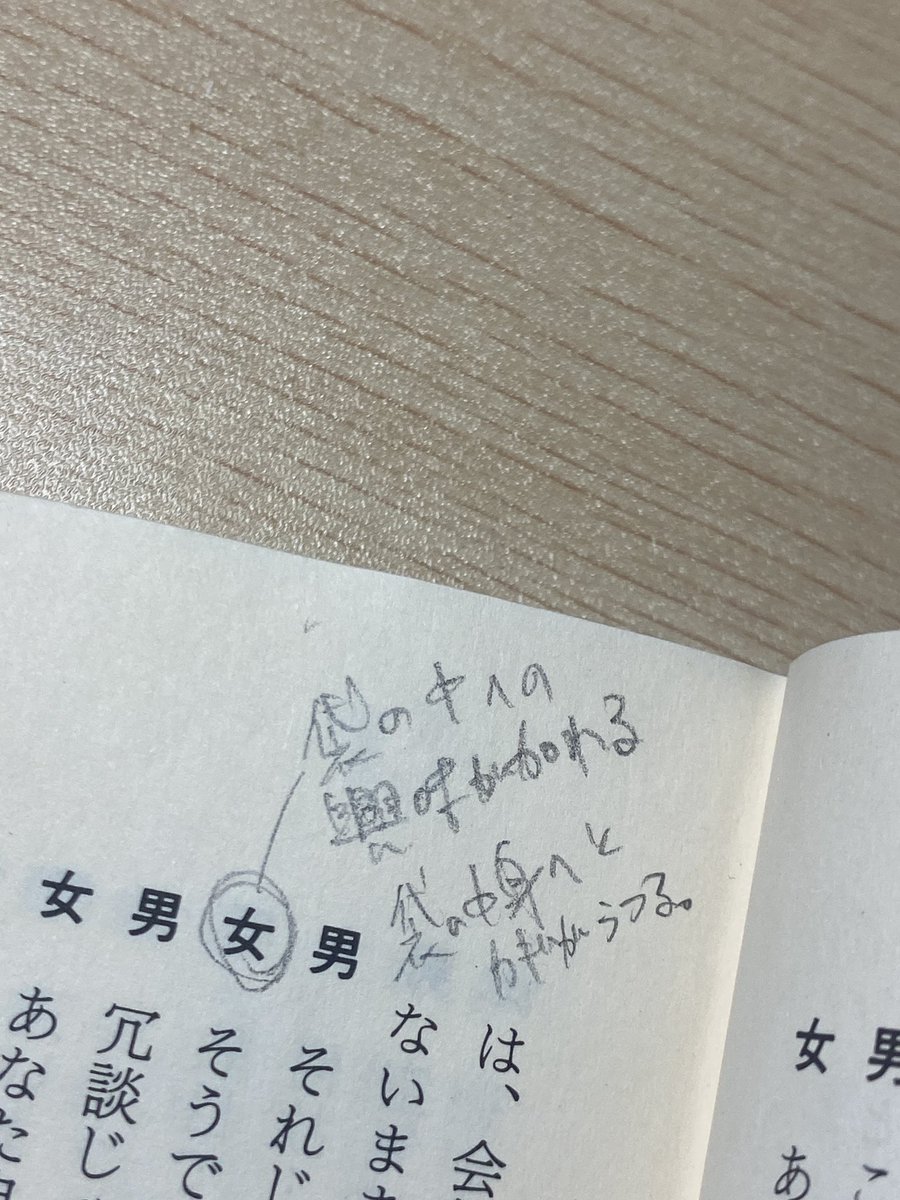 袋の中への
興味が
袋の中身へと
がうつる。
男 こ
女 あ
は、会
ないま
男 それじ
女 そうで
男 冗談じ
女 あなた